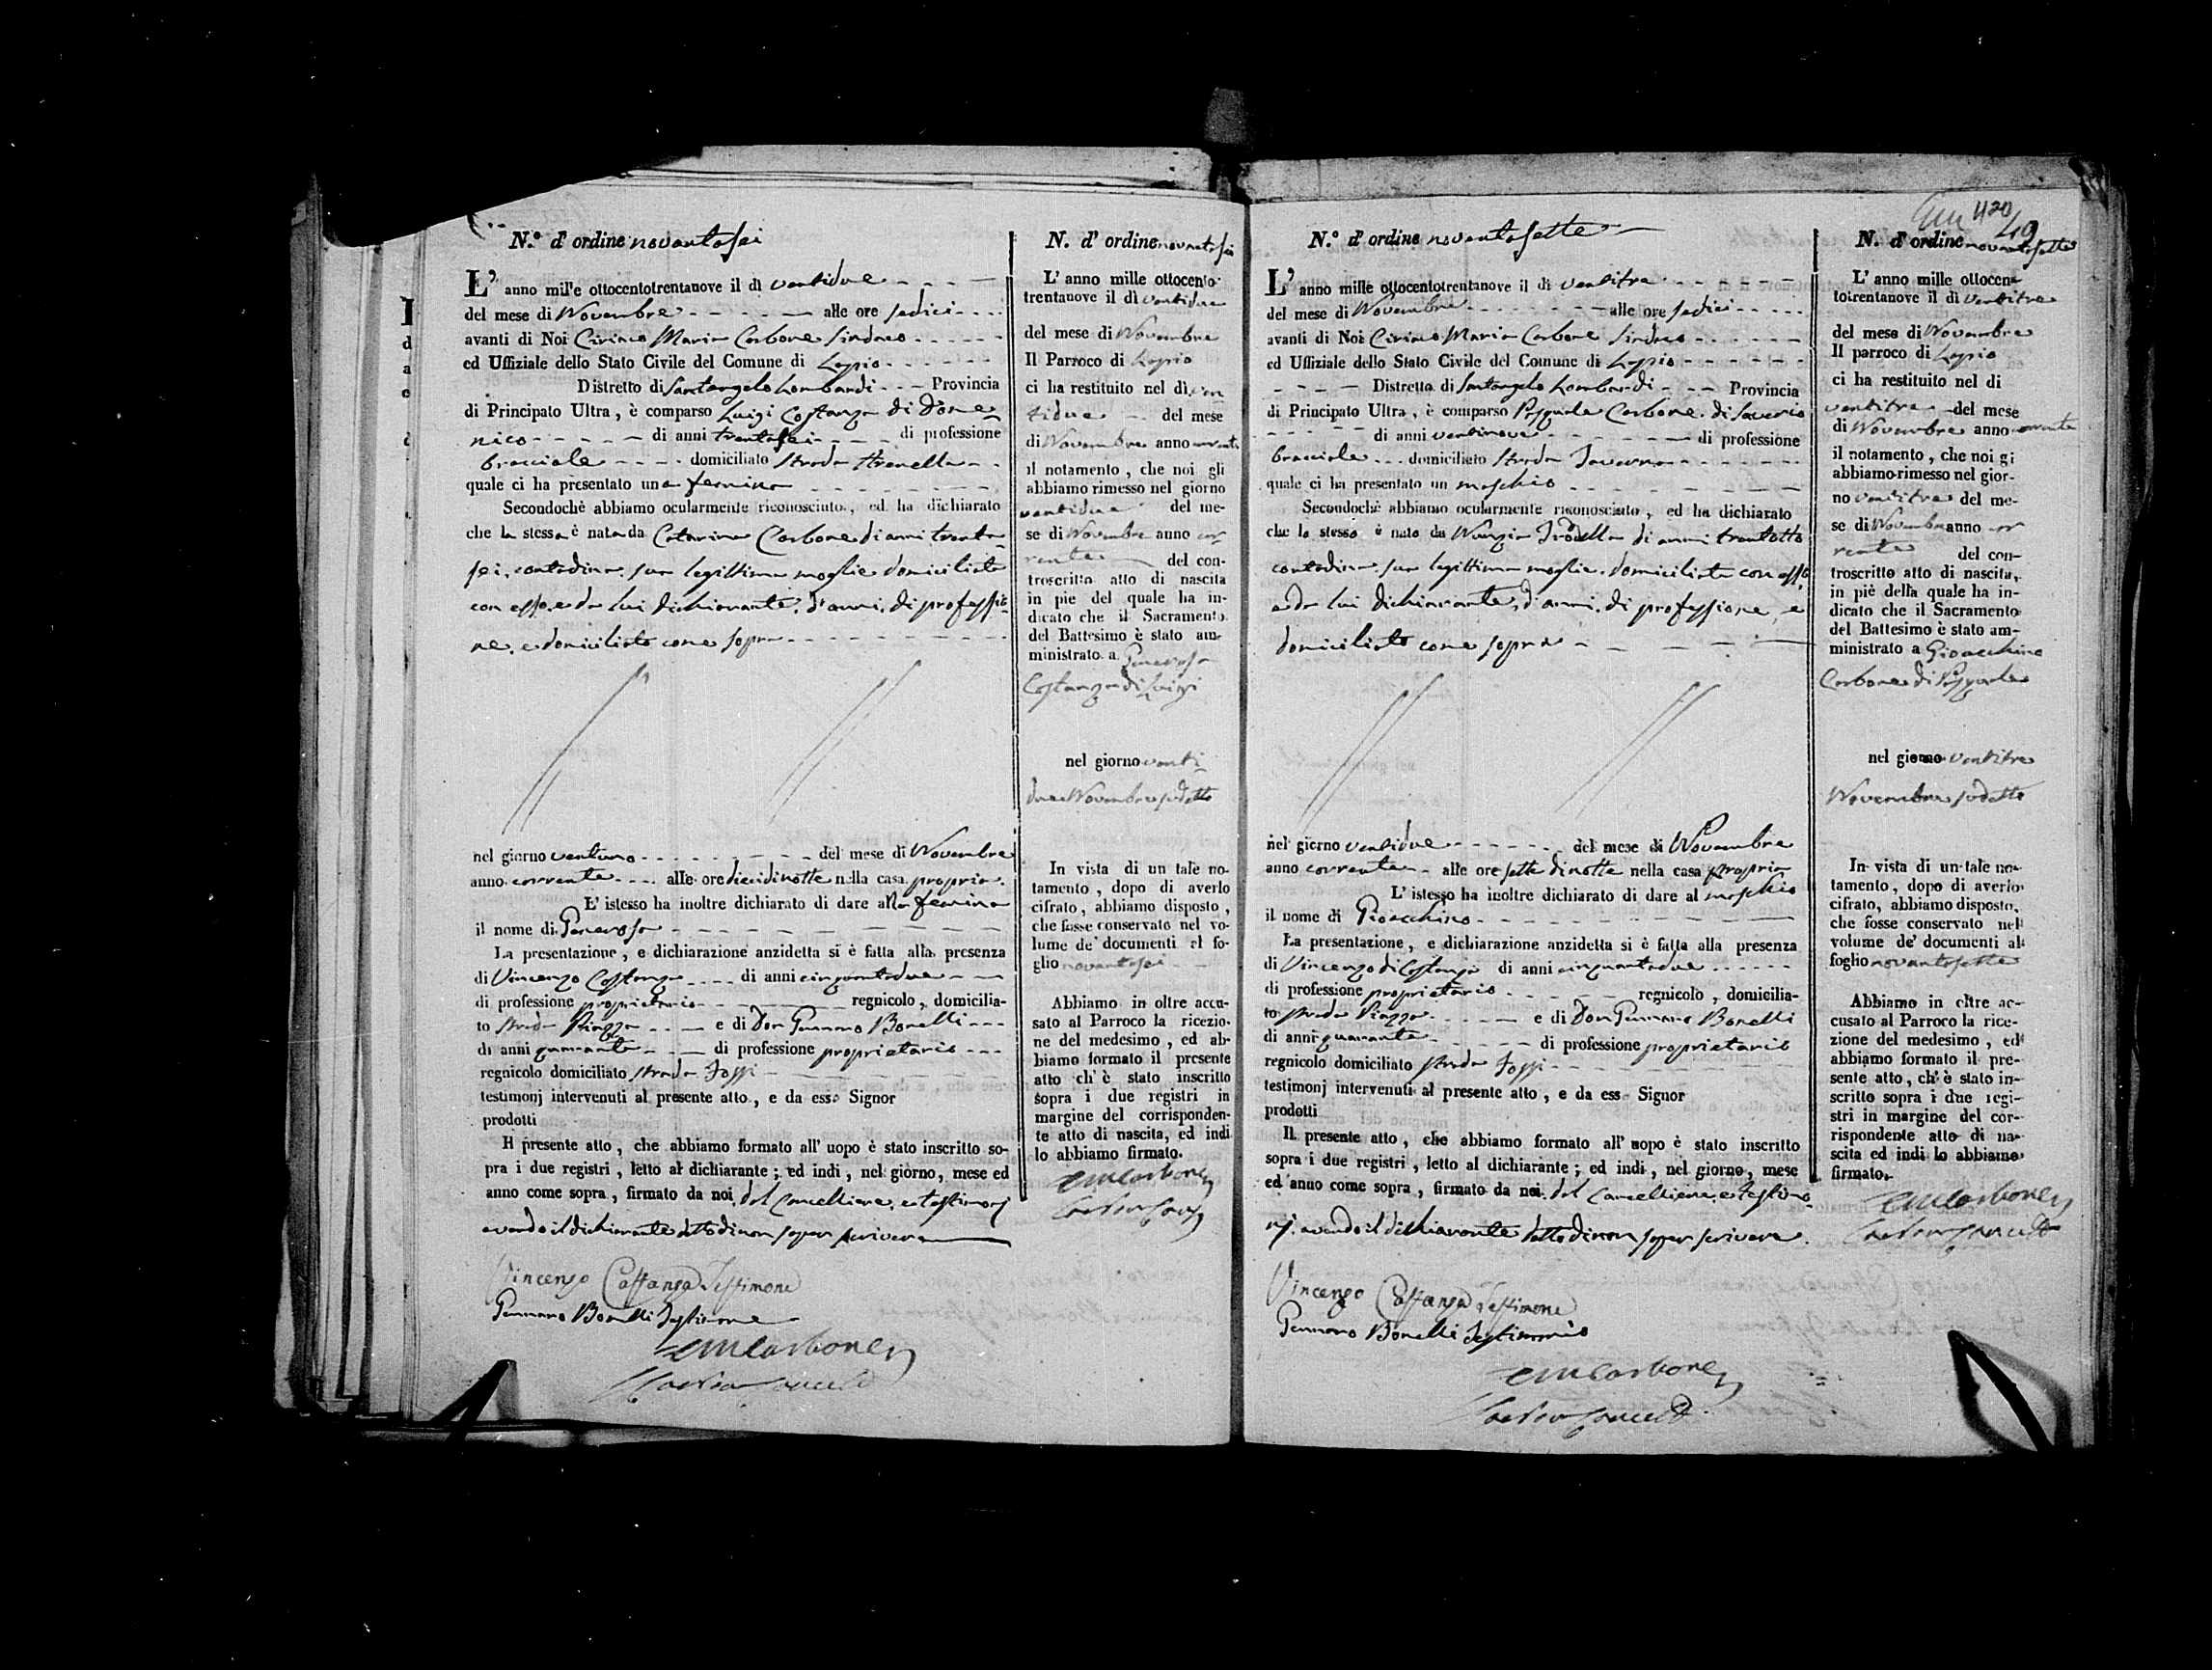 N.º d' ordine novantasei
L' anno mille ottocentotrentanove il dì ventidue
del mese di Novembre alle ore sedici
avanti di Noi Ciriaco Maria Carbone Sindaco
ed Uffiziale dello Stato Civile del Comune di Lapio
Distretto di Santangelo Lombardi Provincia
di Principato Ultra, è comparso Luigi Costanza di Dome
nico di anni trentasei di professione
bracciale domiciliato Strada
quale ci ha presentato una femina
Secondochè abbiamo ocularmente riconosciuto, ed ha dichiarato
che la stessa è nata da Catarina Carbone di anni trenta-
sei, contadina, sua legittima moglie domiciliata
con esso, e da lui dichiarante, d'anni, di professio-
ne, e domiciliato come sopra
nel giorno ventuno del mese di Novembre
anno corrente alle ore dieci di notte nella casa propria
L' istesso ha inoltre dichiarato di dare alla femina
il nome di Generosa
La presentazione, e dichiarazione anzidetta si è fatta alla presenza
di Vincenzo Costanza di anni cinquantadue
di professione proprietario regnicolo, domicilia-
to strada Piazza e di Don Gennaro Bonelli
di anni quaranta di professione proprietario
regnicolo domiciliato strada Fossi
testimonj intervenuti al presente atto, e da esso Signor
prodotti
Il presente atto, che abbiamo formato all' uopo è stato inscritto so-
pra i due registri, letto al dichiarante; ed indi, nel giorno, mese ed
anno come sopra, firmato da noi, dal Cancelliere, e testimonj
avendo il dichiarante detto di non saper scrivere
Vincenzo Costanza Testimone
Gennaro Bonelli Testimone
CMCarbone
N. d' ordine novantasei
L' anno mille ottocento-
trentanove il dì ventidue
del mese di Novembre
Il Parroco di Lapio
ci ha restituito nel dì ven
tidue del mese
di Novembre anno corrente
il notamento, che noi gli
abbiamo rimesso nel giorno
ventidue del me-
se di Novembre anno cor
rente del con-
troscritto atto di nascita
in piè del quale ha in-
dicato che il Sacramento
del Battesimo è stato am-
ministrato a Generosa
Costanza di Luigi
nel giorno venti-
due Novembre sudetto
In vista di un tale no-
tamento, dopo di averlo
cifrato, abbiamo disposto,
che fosse conservato nel vo-
lume de' documenti al fo-
glio novantasei
Abbiamo in oltre accu-
sato al Parroco la ricezio-
ne del medesimo, ed ab-
biamo formato il presente
atto ch' è stato inscritto
sopra i due registri in
margine del corrisponden-
te atto di nascita, ed indi
lo abbiamo firmato.
CMCarbone
420
49
N.º d' ordine novantasette
L' anno mille ottocentotrentanove il dì ventitre
del mese di Novembre alle ore sedici
avanti di Noi Ciriaco Maria Carbone Sindaco
ed Uffiziale dello Stato Civile del Comune di Lapio
Distretto di Santangelo Lombardi Provincia
di Principato Ultra, è comparso Pasquale Carbone di Saverio
di anni ventinove di professione
bracciale domiciliato Strada Taverna
quale ci ha presentato un maschio
Secondochè abbiamo ocularmente riconosciuto, ed ha dichiarato
che lo stesso è nato da Nunzia di anni trentotto
contadina, sua legittima moglie, domiciliata con esso
e da lui dichiarante, d'anni, di professione, e
domiciliato come sopra
nel giorno ventidue del mese di Novembre
anno corrente alle ore sette di notte nella casa propria
L' istesso ha inoltre dichiarato di dare al maschio
il nome di Gioacchino
La presentazione, e dichiarazione anzidetta si è fatta alla presenza
di Vincenzo di Costanza di anni cinquantadue
di professione proprietario regnicolo, domicilia-
to strada Piazza e di Don Gennaro Bonelli
di anni quaranta di professione proprietario
regnicolo domiciliato strada Fossi
testimonj intervenuti al presente atto, e da ess Signor
prodotti
Il presente atto, che abbiamo formato all' uopo è stato inscritto
sopra i due registri, letto al dichiarante; ed indi, nel giorno, mese
ed anno come sopra, firmato da noi, dal Cancelliere, e testimo-
nj, avendo il dichiarante detto di non saper scrivere.
Vincenzo Costanza Testimone
Gennaro Bonelli Testimonio
CMCarbone
N. d' ordine novantasette
L' anno mille ottocen-
totrentanove il dì ventitre
del mese di Novembre
Il parroco di Lapio
ci ha restituito nel di
ventitre del mese
di Novembre anno corrente
il notamento, che noi gi
abbiamo rimesso nel gior-
no ventitre del me-
se di Novembre anno cor
rente del con-
troscritto atto di nascita,
in piè della quale ha in-
dicato che il Sacramento
del Battesimo è stato am-
ministrato a Gioacchino
Carbone di Pasquale
nel giorno ventitre
Novembre sudetto
In vista di un tale no-
tamento, dopo di averlo
cifrato, abbiamo disposto,
che fosse conservato nel
volume de' documenti al
foglio novantasette
Abbiamo in oltre ac-
cusato al Parroco la rice-
zione del medesimo, ed
abbiamo formato il pre-
sente atto, ch' è stato in-
scritto sopra i due regi-
stri in margine del cor-
rispondente atto di na-
scita ed indi lo abbiamo
firmato.
CMCarbone